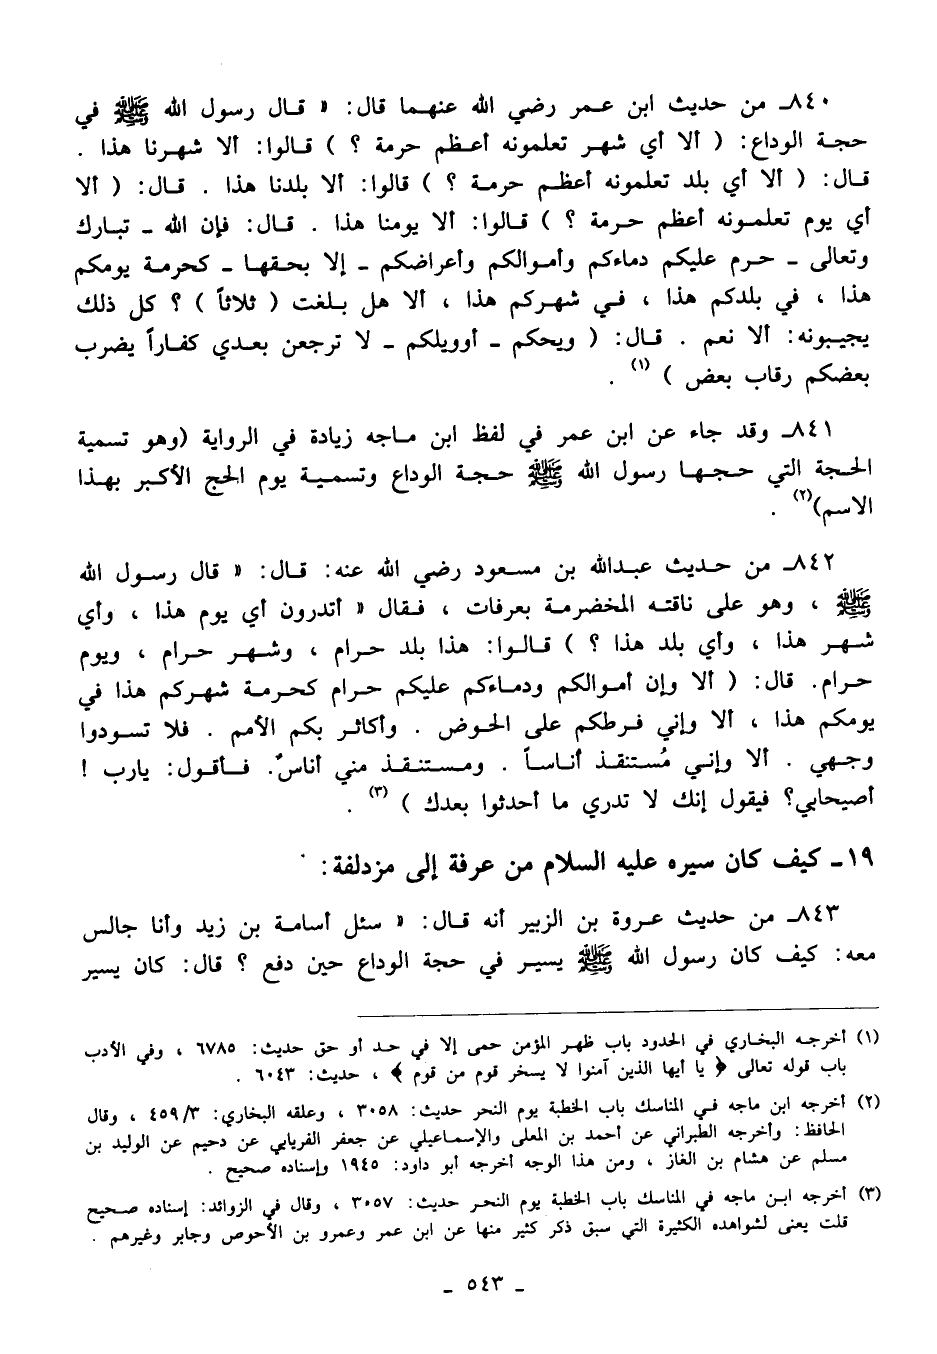 ٨٤٠ـ من حديث ابن عمر رضي الله عنهما قال: « قال رسول الله ﷺ في
حجة الوداع: ( ألا أي شهر تعلمونه أعظم حرمة ؟ ) قالوا: ألا شهرنا هذا .
قال: ( ألا أي بلد تعلمونه أعظم حرمة ؟ ) قالوا: ألا بلدنا هذا . قال: ( ألا
أي يوم تعلمونه أعظم حرمة ؟ ) قالوا: ألا يومنا هذا . قال: فإن الله ـ تبارك
وتعالى ـ حرم عليكم دماءكم وأموالكم وأعراضكم ـ إلا بحقها ـ كحرمة يومكم
هذا ، في بلدكم هذا ، في شهركم هذا ، ألا هل بلغت ( ثلاثاً ) ؟ كل ذلك
يجيبونه: ألا نعم . قال: ( ويحكم ـ أوويلكم ـ لا ترجعن بعدي كفاراً يضرب
بعضكم رقاب بعض ) (١) .
٨٤١ـ وقد جاء عن ابن عمر في لفظ ابن ماجه زيادة في الرواية (وهو تسمية
الحجة التي حجها رسول الله ﷺ حجة الوداع وتسمية يوم الحج الأكبر بهذا
الاسم)(٢) .
٨٤٢ـ من حديث عبدالله بن مسعود رضي الله عنه: قال: « قال رسول الله
ﷺ ، وهو على ناقته المخضرمة بعرفات ، فقال « أتدرون أي يوم هذا ، وأي
شهر هذا ، وأي بلد هذا ؟ ) قالوا: هذا بلد حرام ، وشهر حرام ، ويوم
حرام. قال: ( ألا وإن أموالكم ودماءكم عليكم حرام كحرمة شهركم هذا في
يومكم هذا ، ألا وإني فرطكم على الحوض . وأكاثر بكم الأمم . فلا تسودوا
وجهي . ألا وإني مُستنقذ أناساً . ومستنقذ مني أناسٌ. فأقول: يارب !
أصيحابي؟ فيقول إنك لا تدري ما أحدثوا بعدك ) (٣) .
١٩ـ كيف كان سيره عليه السلام من عرفة إلى مزدلفة:
٨٤٣ـ من حديث عروة بن الزبير أنه قال: « سئل أسامة بن زيد وأنا جالس
معه: كيف كان رسول الله ﷺ يسير في حجة الوداع حين دفع ؟ قال: كان يسير
(١) أخرجه البخاري في الحدود باب ظهر المؤمن حمى إلا في حد أو حق حديث: ٦٧٨٥ ، وفي الأدب
باب قوله تعالى ﴿ يا أيها الذين آمنوا لا يسخر قوم من قوم ﴾ ، حديث: ٦٠٤٣ .
(٢) أخرجه ابن ماجه في المناسك باب الخطبة يوم النحر حديث: ٣٠٥٨ ، وعلقه البخاري: ٤٥٩/٣ ، وقال
الحافظ: وأخرجه الطبراني عن أحمد بن المعلى والإسماعيلي عن جعفر الفريابي عن دحيم عن الوليد بن
مسلم عن هشام بن الغاز ، ومن هذا الوجه أخرجه أبو داود: ١٩٤٥ وإسناده صحيح .
(٣) أخرجه ابن ماجه في المناسك باب الخطبة يوم النحر حديث: ٣٠٥٧ ، وقال في الزوائد: إسناده صحيح
قلت يعنى لشواهده الكثيرة التي سبق ذكر كثير منها عن ابن عمر وعمرو بن الأحوص وجابر وغيرهم .
ـ ٥٤٣ ـ